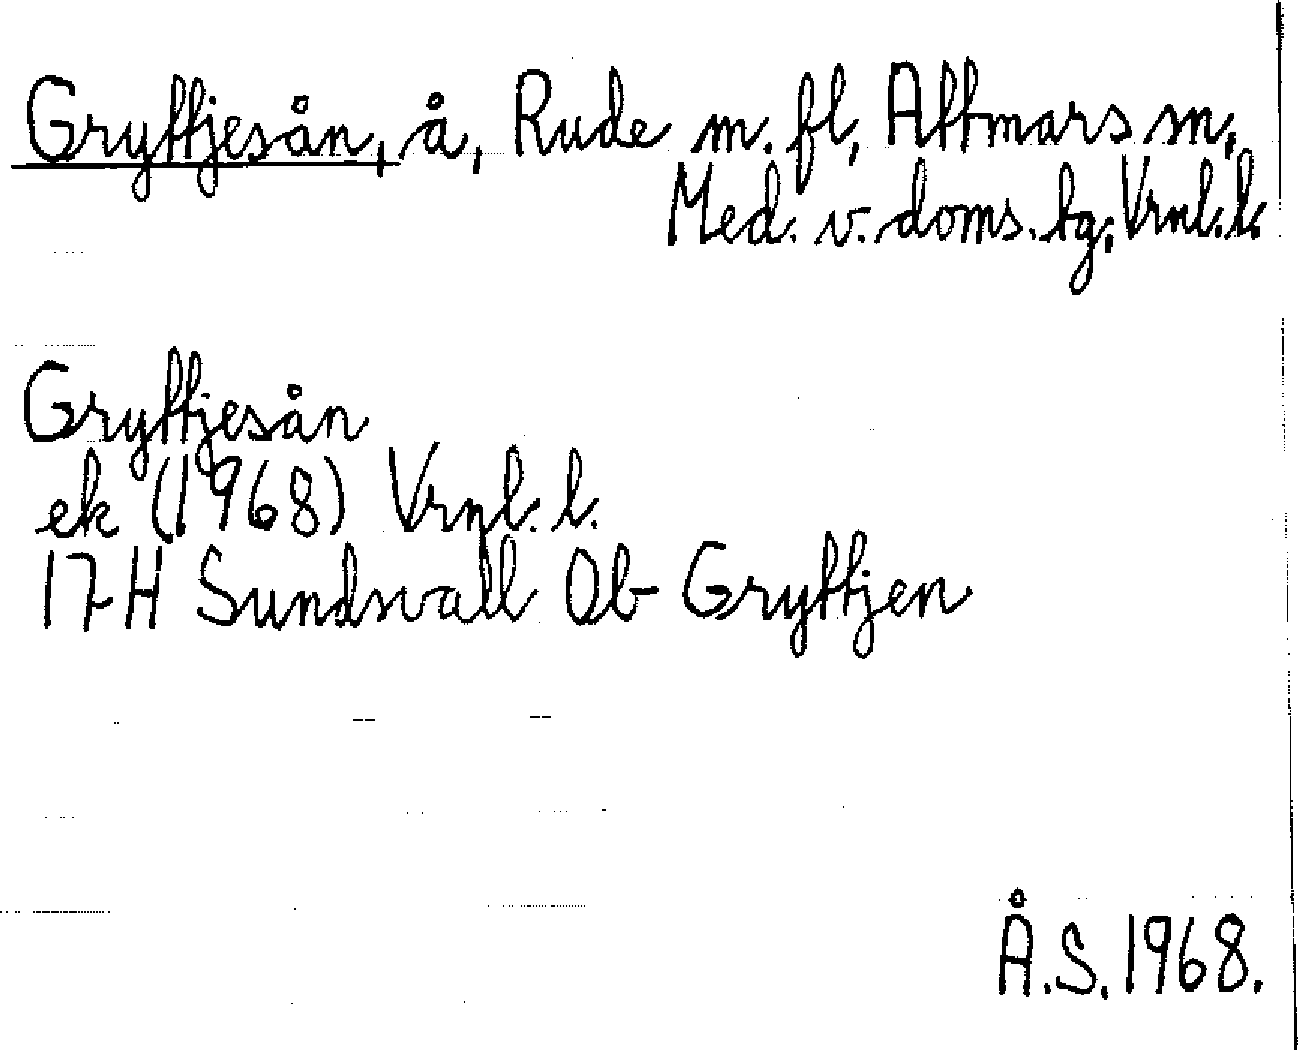 Gryttjesån, å, Rude m. fl, Attmars sn,
Med. v. doms. tg, Vrnl. l.
Gryttjesån
ek (1968) Vrnl. l.
17H Sundsvall Ob Gryttjen
Å.S. 1968.